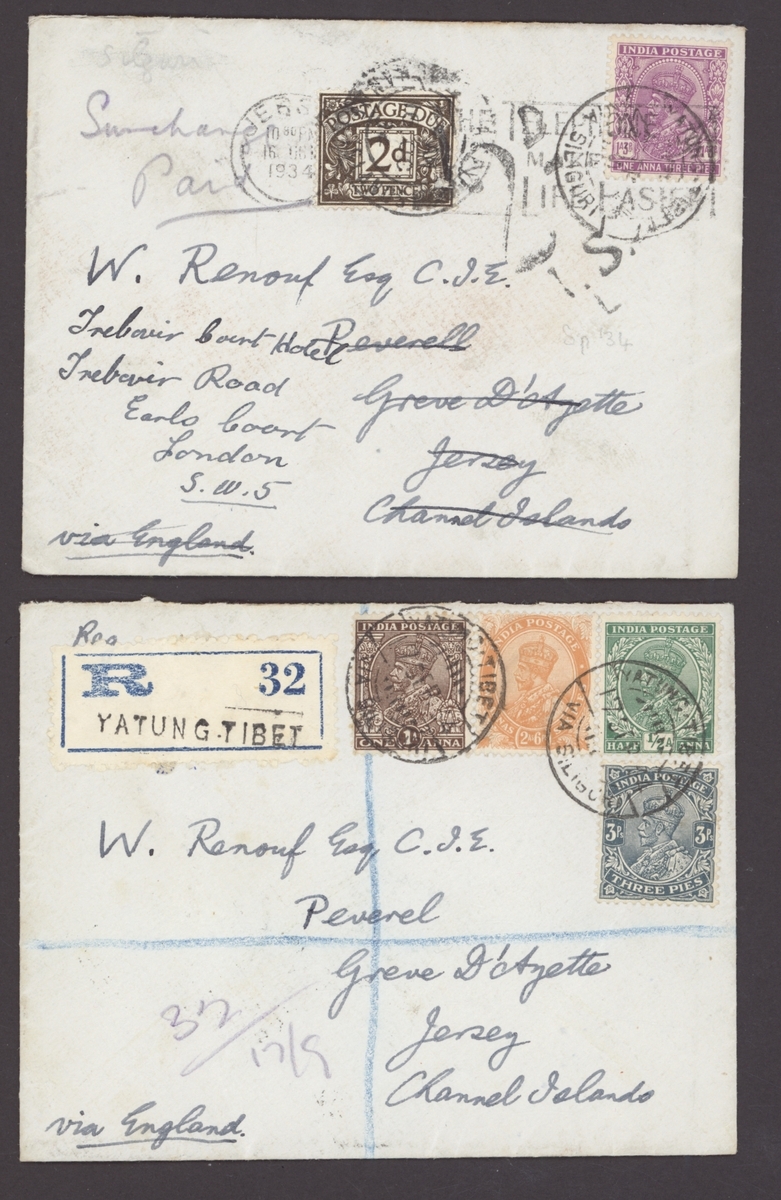 Siliguri
Surcharge
Paid
JERSEY
1934
POSTAGE DUE
2d
TWO PENCE
THE TELEPHONE
MAKES
LIFE EASIER
INDIA POSTAGE
1A3P
ONE ANNA THREE PIES
W. Renouf Esq C.I.E.
Trebovir Court Hotel
Peverell
Trebovir Road
Greve D'Azette
Earls Court
Jersey
London
S.W.5
Channel Islands
via England.
Reg
R 32
YATUNG-TIBET
INDIA POSTAGE
1A
ONE ANNA
INDIA POSTAGE
2A6P
INDIA POSTAGE
1/2A
HALF ANNA
YATUNG TIBET
VIA SILIGURI
INDIA POSTAGE
3Ps 3Ps
THREE PIES
W. Renouf Esq C.I.E.
Peverel
Greve D'Azette
Jersey
Channel Islands
via England.